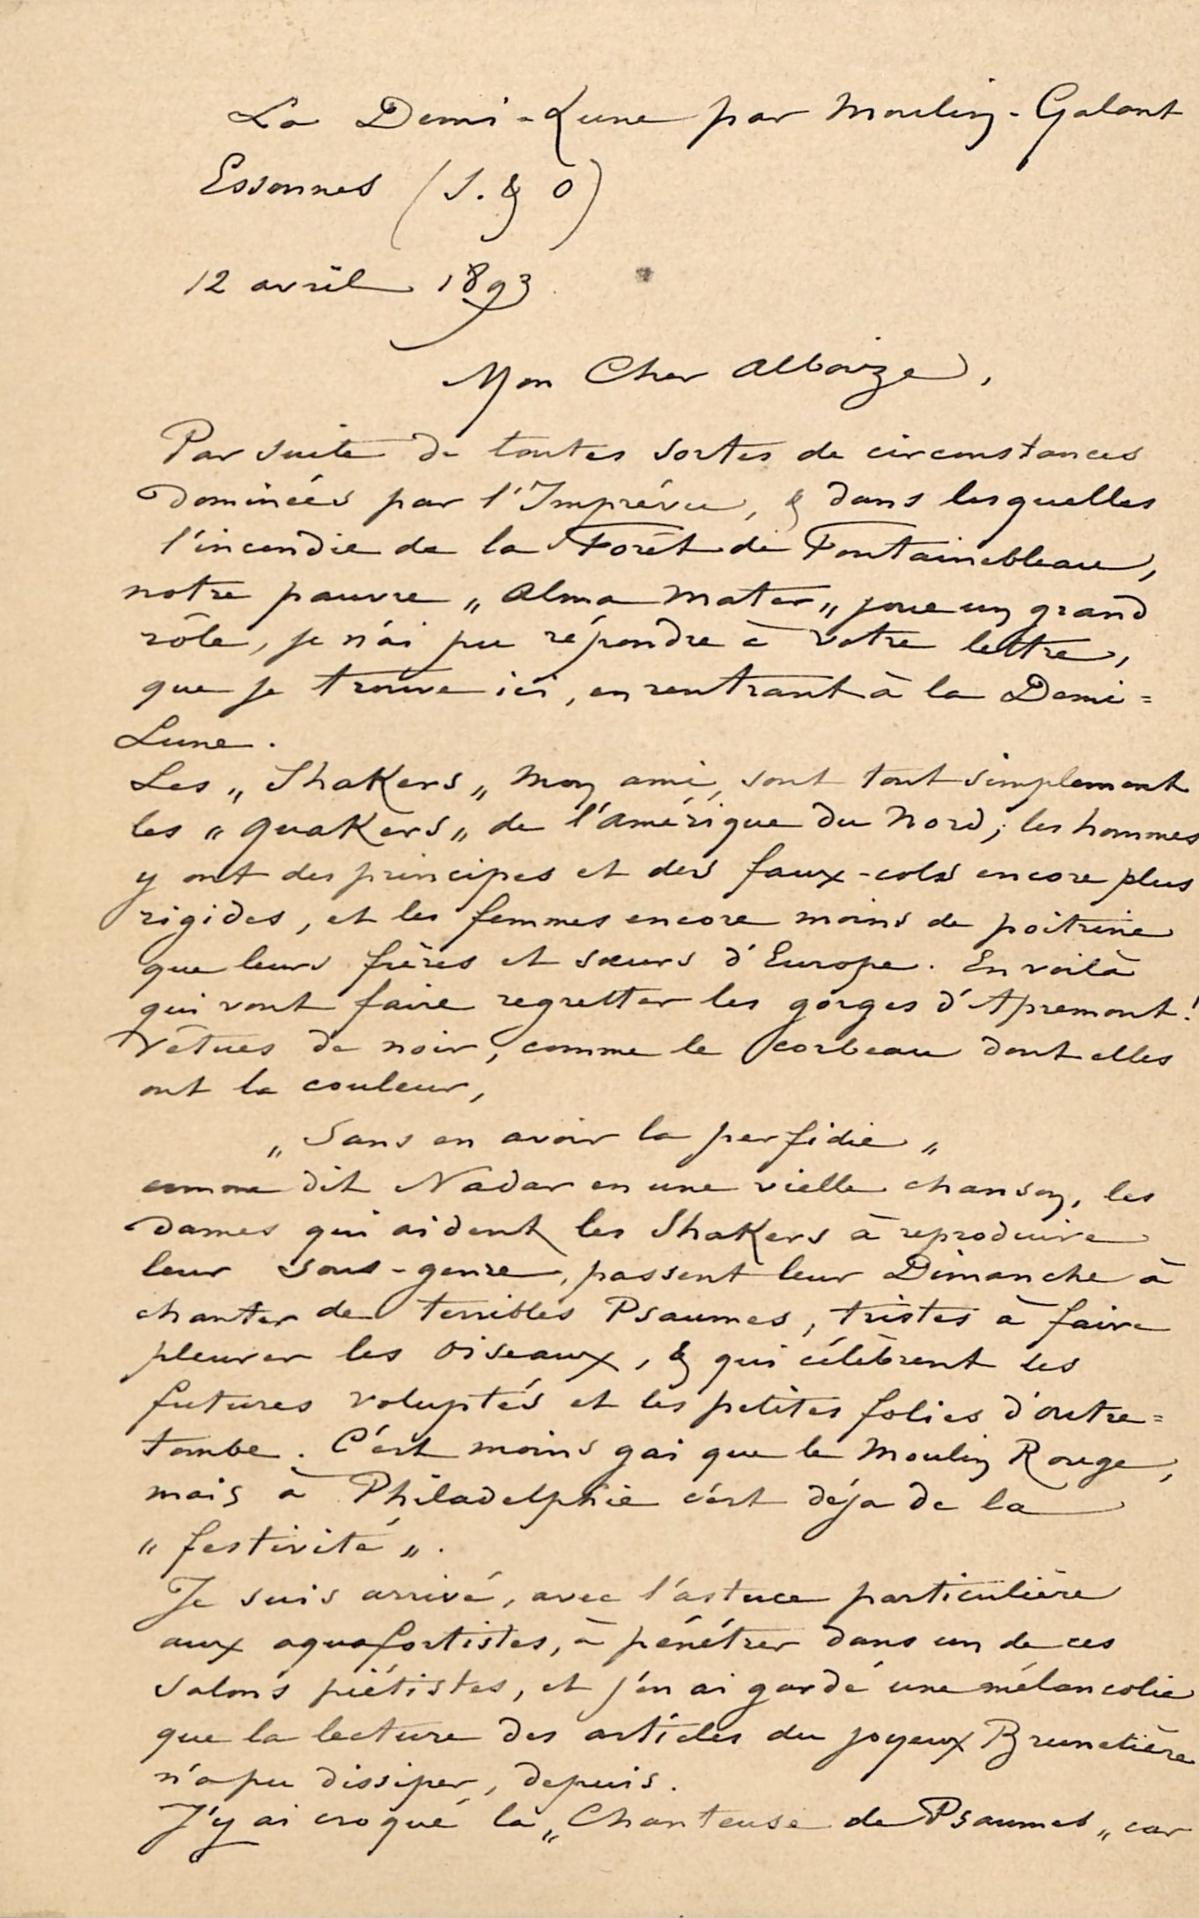 La Demi-Lune par Moulin-Galant
Essonnes (S. & O)
12 avril 1893
Mon Cher Alboize,
Par suite de toutes sortes de circonstances
dominées par l'Imprévu, & dans lesquelles
l'incendie de la Forêt de Fontainebleau,
notre pauvre „Alma Mater„ joue un grand
rôle, je n'ai pu répondre à votre lettre,
que je trouve ici, en rentrant à la Demi=
Lune.
Les „Shakers„ mon ami, sont tout simplement
les „Quakers„ de l'Amérique du Nord; les hommes
y ont des principes et des faux-cols encore plus
rigides, et les femmes encore moins de poitrine
que leurs frères et sœurs d'Europe. En voilà
qui vont faire regretter les gorges d'Apremont!
Vêtues de noir, comme le corbeau dont elles
ont la couleur,
„Sans en avoir la perfidie„
comme dit Nadar en une vielle chanson, les
dames qui aident les Shakers à reproduire
leur sous-genre, passent leur Dimanche à
chanter de terribles Psaumes, tristes à faire
pleurer les oiseaux, & qui célèbrent les
futures voluptés et les petites folies d'outre=
tombe. C'est moins gai que le Moulin Rouge,
mais à Philadelphie c'est déja de la
„festivité„.
Je suis arrivé, avec l'astuce particulière
aux aquafortistes, à pénétrer dans un de ces
salons piétistes, et j'en ai gardé une mélancolie
que la lecture des articles du joyeux Brunetière
n'a pu dissiper, depuis.
J'y ai croqué la „Chanteuse de Psaumes„ car